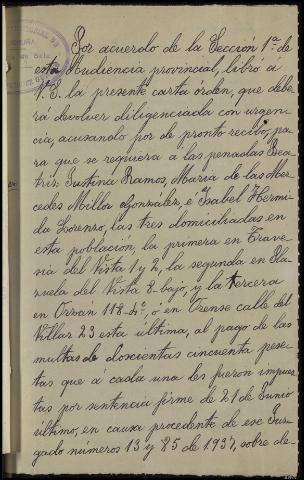 Por acuerdo de la Sección 1ª de
esta Audiencia provincial, libro á
V.S. la presente carta órden, que debe
rá devolver diligenciada con urgen
cia, acusando por de pronto recibo, pa
ra que se requiera a las penadas Bea
triz Justina Ramos, María de las Mer
cedes Milloz González, é Isabel Hermi
da Lorenzo, las tres domiciliadas en
esta población, la primera en Trave
sia del Vista 1 y 2, la segunda en Pla
zuela del Vista 8-bajo, y la tercera
en Orzán 118-4º, ó en Orense calle del
Villar 23 esta última, al pago de las
multas de doscientas cincuenta pese
tas que á cada una les fueron impues
tas por sentencia firme de 21 de Junio
último, en causa procedente de ese Juz
gado números 13 y 85 de 1937, sobre de-